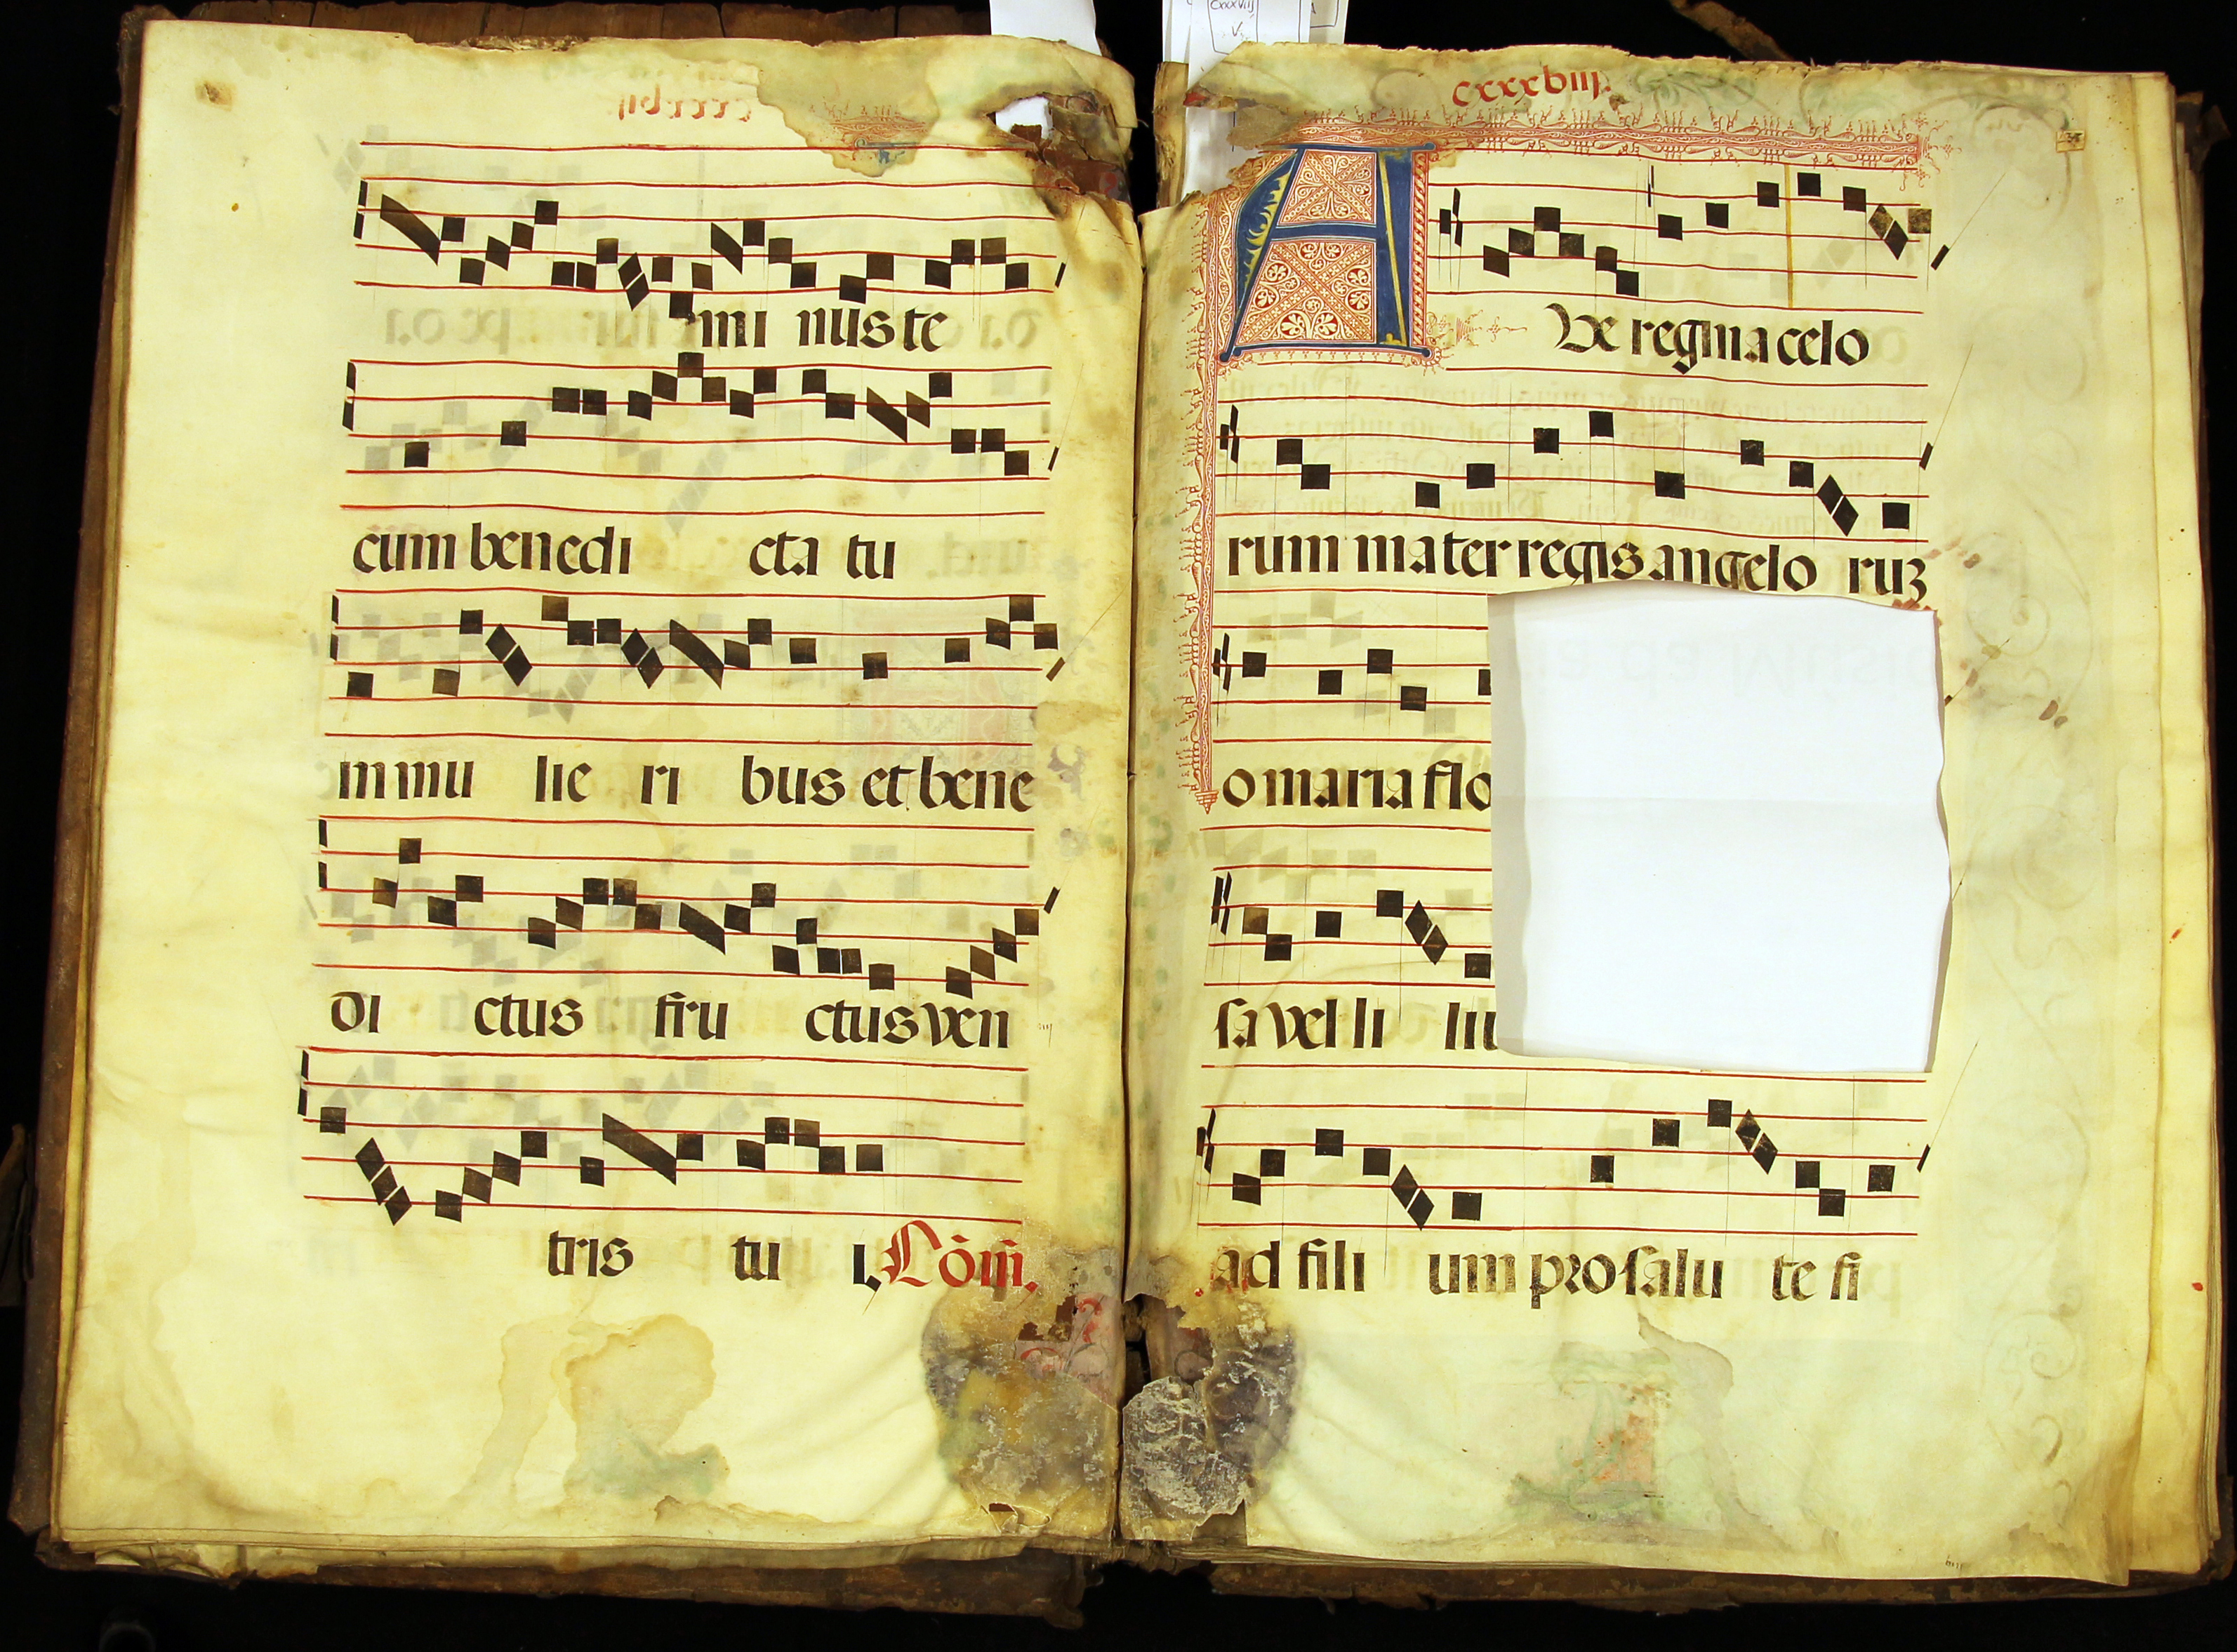 mi nus te
cum benedi cta tu
in mu lie ri bus et bene
di ctus fru ctus ven
tris tu i. Cōm̄.
cxxxviij.
AVe regina celo
rum mater regis angelo ruꝫ
o maria flo
sa vel li liu
ad fili um pro salu te fi